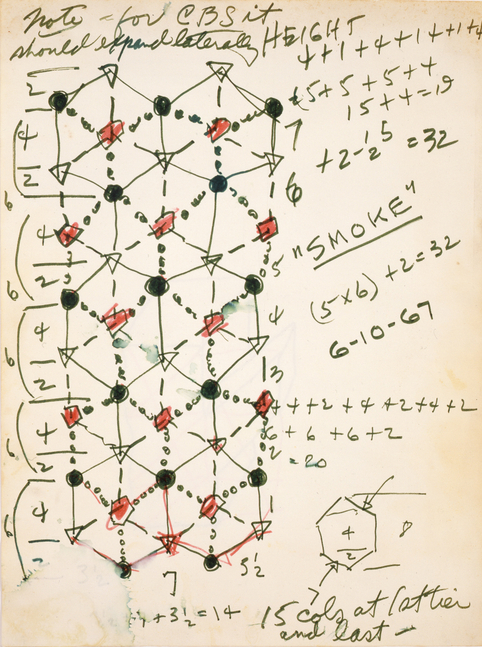 Note = for CBS it
should expand laterally HEIGHT
4+1+4+1+4+1+4
5+5+5+4
15+4=19
15
+2-2 = 32
"SMOKE"
(5x6) +2=32
6-10-67
7
6
5
4
3
2
1
2
6 (4
2
6 (4
2
6 (4
2
6 (4
2
6 (4
+4+2+4+2+4+2
6+6+6+2
= 20
4
2
8
3½
7
+3½=14
15 cols at 1st tier
and last —